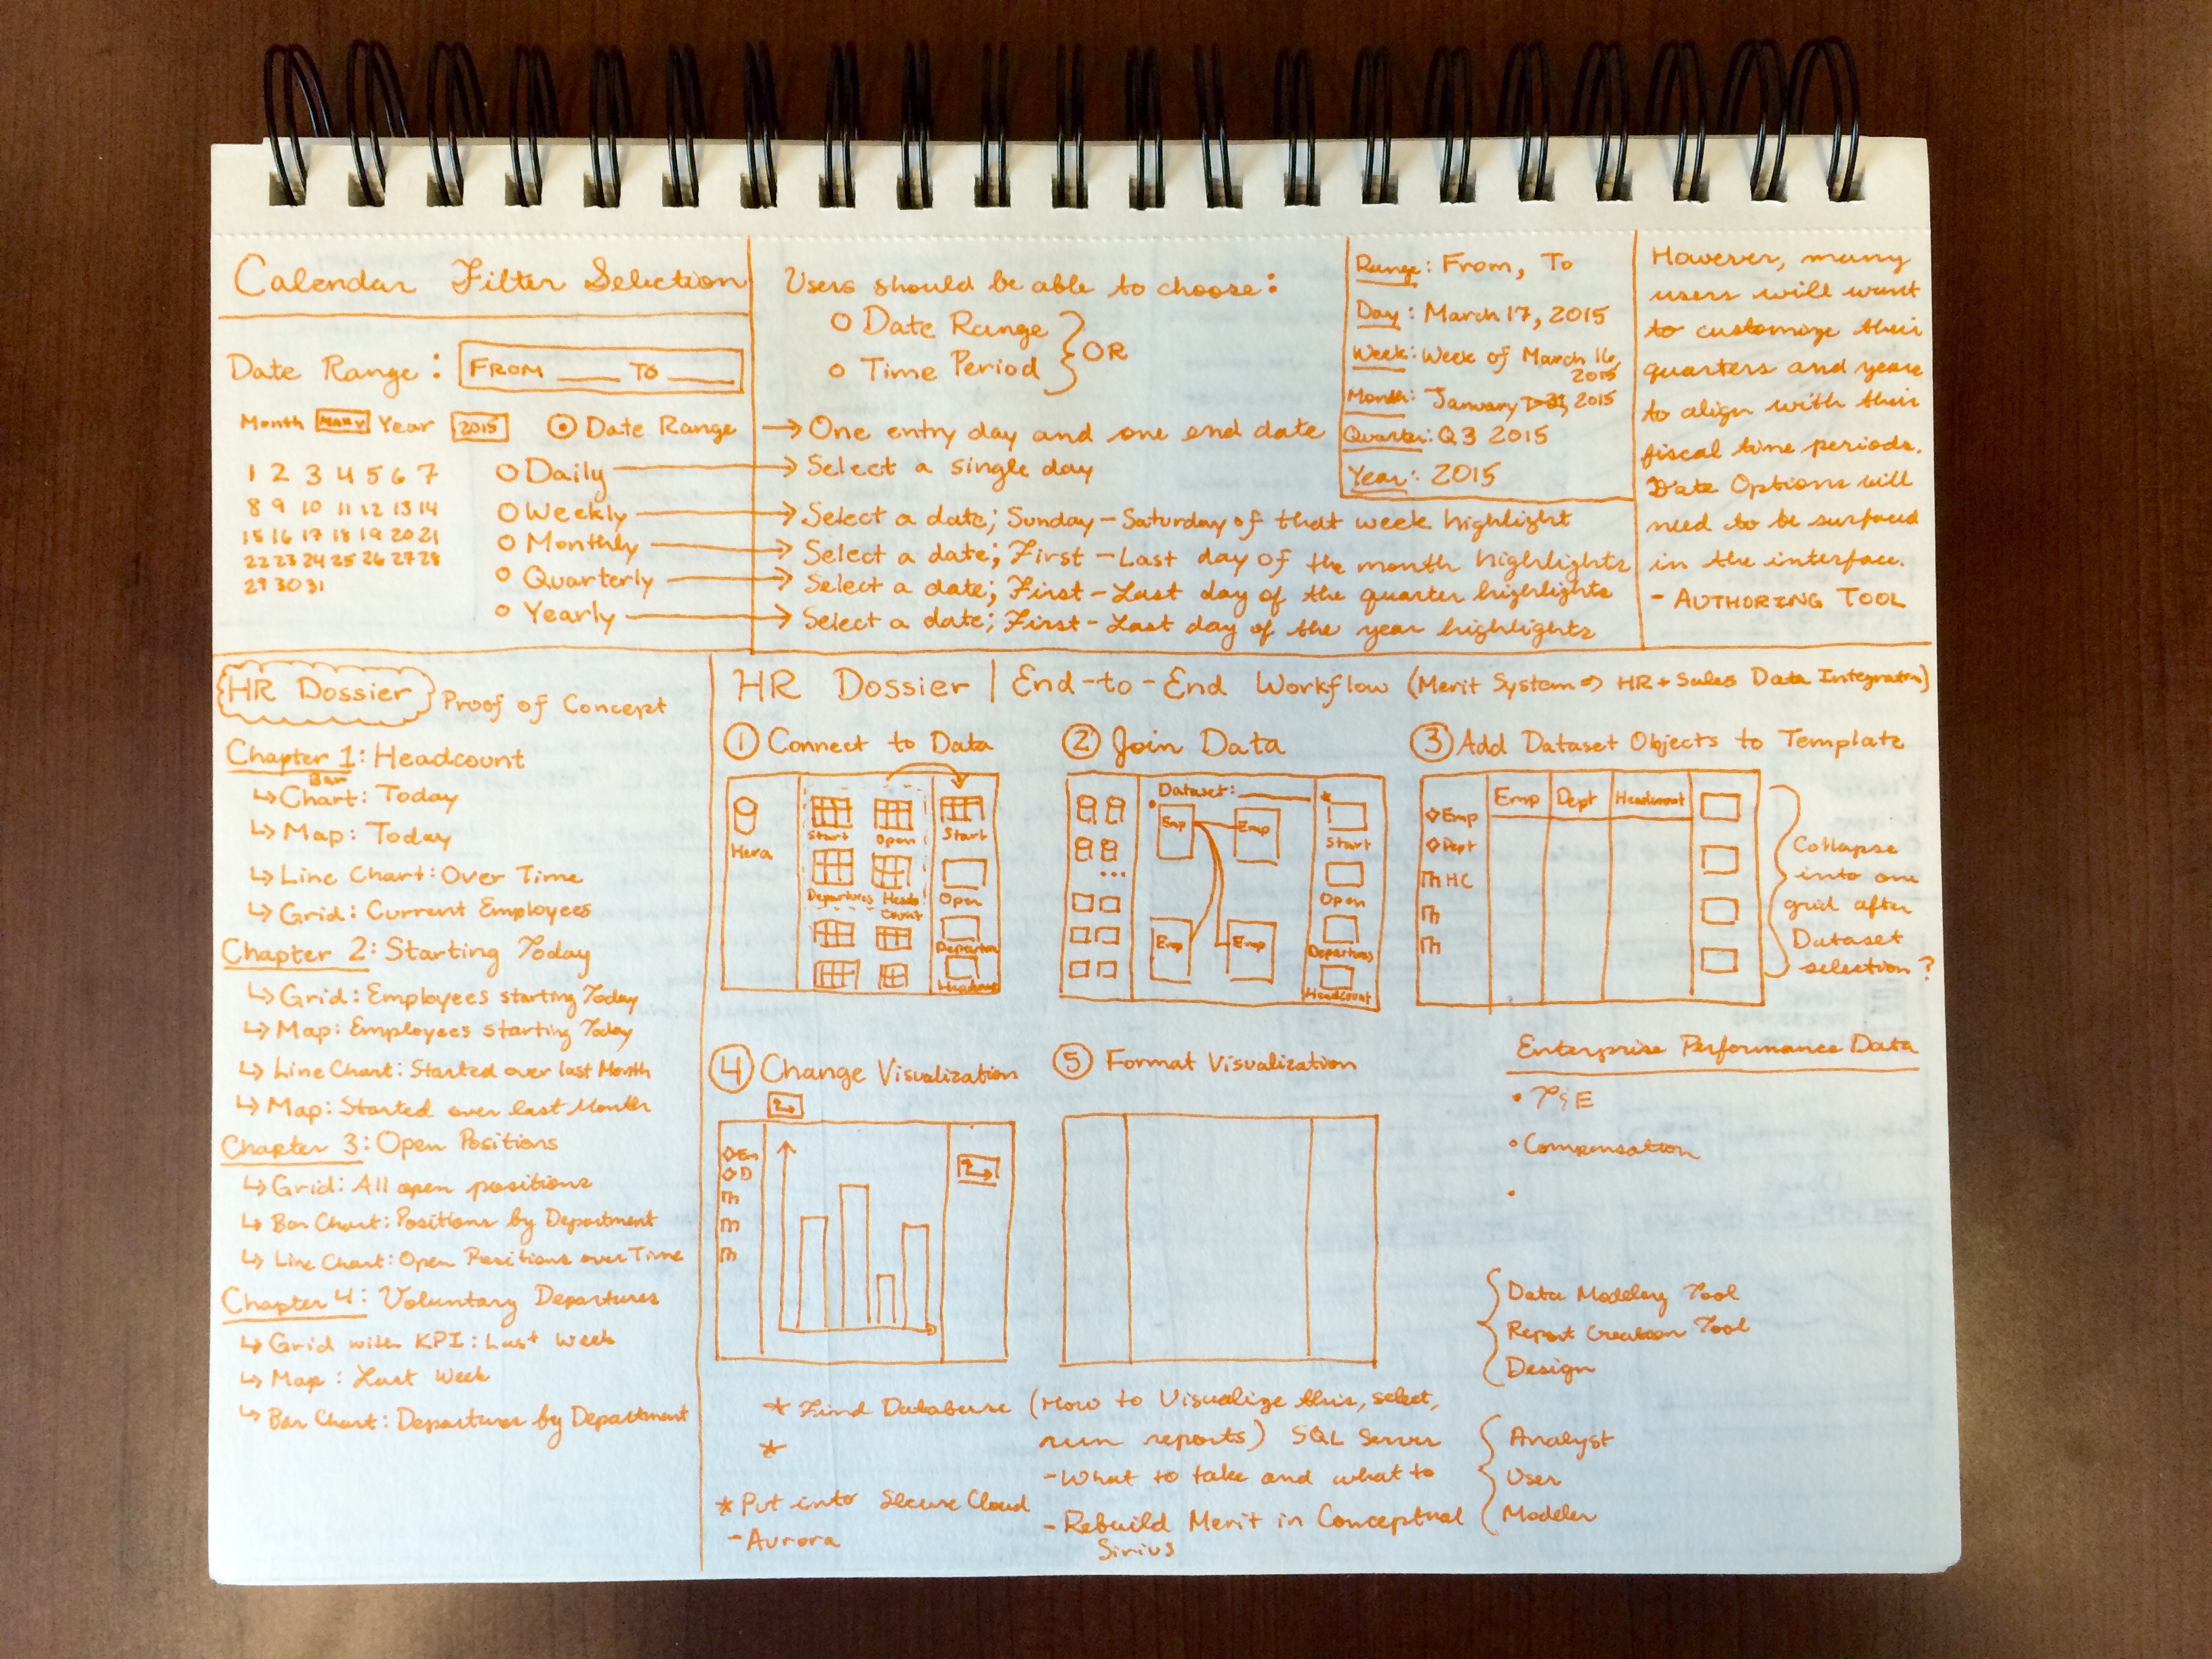 Calendar Filter Selection
Date Range: FROM ____ TO ____
Month Year 2015
1 2 3 4 5 6 7
8 9 10 11 12 13 14
15 16 17 18 19 20 21
22 23 24 25 26 27 28
29 30 31
Date Range
Daily
Weekly
Monthly
Quarterly
Yearly
Users should be able to choose:
Date Range
Time Period
OR
One entry day and one end date
Select a single day
Select a date; Sunday-Saturday of that week highlight
Select a date; First-Last day of the month highlights
Select a date; First-Last day of the quarter highlights
Select a date; First-Last day of the year highlights
Range: From, To
Day: March 17, 2015
Week: Week of March 16, 2015
Month: January 2015
Quarter: Q3 2015
Year: 2015
However, many
users will want
to customize their
quarters and years
to align with their
fiscal time periods.
Date Options will
need to be surfaced
in the interface.
- AUTHORING TOOL
HR Dossier Proof of Concept
Chapter 1: Headcount
↳ Bar Chart: Today
↳ Map: Today
↳ Line Chart: Over Time
↳ Grid: Current Employees
Chapter 2: Starting Today
↳ Grid: Employees starting Today
↳ Map: Employees starting Today
↳ Line Chart: Started over last Month
↳ Map: Started over last Month
Chapter 3: Open Positions
↳ Grid: All open positions
↳ Bar Chart: Positions by Department
↳ Line Chart: Open Positions over Time
Chapter 4: Voluntary Departures
↳ Grid with KPI: Last Week
↳ Map: Last Week
↳ Bar Chart: Departures by Department
HR Dossier | End-to-End Workflow (Merit System => HR + Sales Data Integration)
① Connect to Data
Hera
Start
Open
Departures
Heads Count
Start
Open
Headcount
② Join Data
Dataset: ____
Emp
Emp
Emp
Emp
Start
Open
Departures
Headcount
③ Add Dataset Objects to Template
Emp
Dept
HC
Emp Dept Headcount
Collapse
into one
grid after
Dataset
selection?
④ Change Visualization
Em
D
⑤ Format Visualization
Enterprise Performance Data
• T&E
• Compensation
•
Data Modeling Tool
Report Creation Tool
Design
Analyst
User
Modeler
* Find Database (How to Visualize this, select,
run reports) SQL Server
*
- What to take and what to
* Put into Secure Cloud
- Aurora
- Rebuild Merit in Conceptual
Sirius